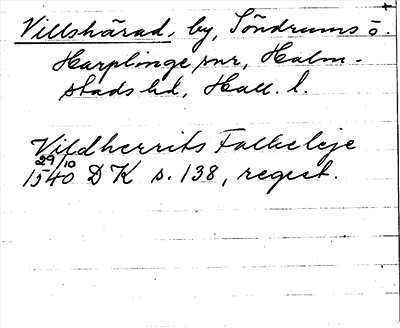 Villshärad, by, Söndrums o.
Harplinge snr, Halm-
stads hd, Hall. l.
Vildherrits Falkeleje
29/10
1540 DK s. 138, regest.